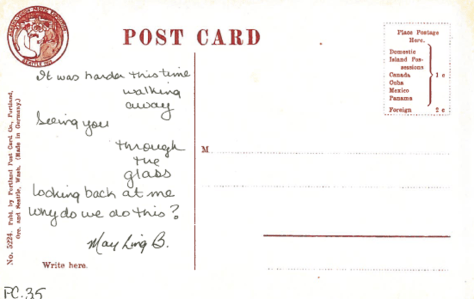 POST CARD
Place Postage
Here.
Domestic
Island Pos-
sessions
Canada
Cuba
Mexico
Panama
1 c
Foreign 2 c
It was harder this time
walking
away
Seeing you
through
the
glass
looking back at me
why do we do this?
May Ling B.
M
Write here.
No. 5224. Publ. by Portland Post Card Co., Portland,
Ore. and Seattle, Wash. (Made in Germany.)
PC.35